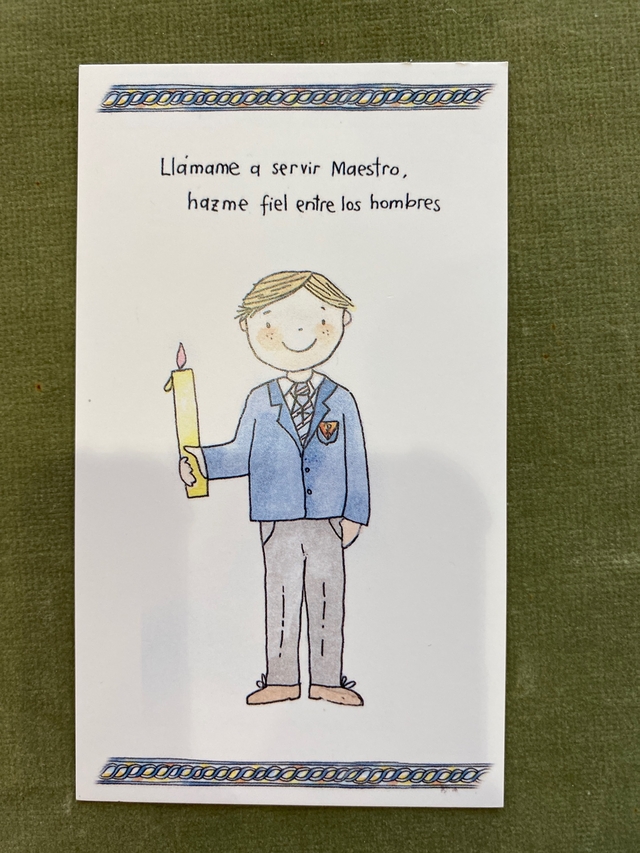 Llámame a servir Maestro,
hazme fiel entre los hombres